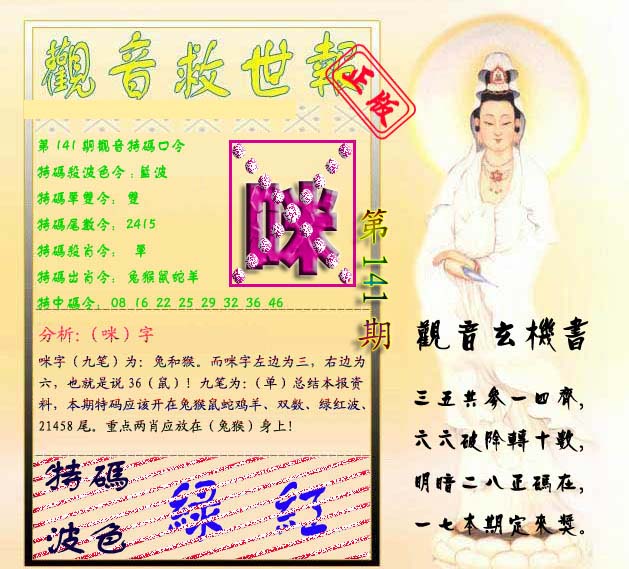 觀音救世報
正版
第141期觀音特碼口令
特碼殺波色令:藍波
特碼單雙令: 雙
特碼尾數令: 2415
特碼殺肖令: 單
特碼出肖令: 兔猴鼠蛇羊
特中碼令: 08 16 22 25 29 32 36 46
咪
第141期
分析:(咪)字
咪字(九笔)为:兔和猴。而咪字左边为三,右边为
六,也就是说36(鼠)!九笔为:(单)总结本报资
料,本期特码应该开在兔猴鼠蛇鸡羊、双数、绿红波、
21458尾。重点两肖应放在(兔猴)身上!
特碼
波色
綠 紅
觀音玄機書
三五共參一四齊,
六六破除轉十數,
明暗二八正碼在,
一七本期定來獎。